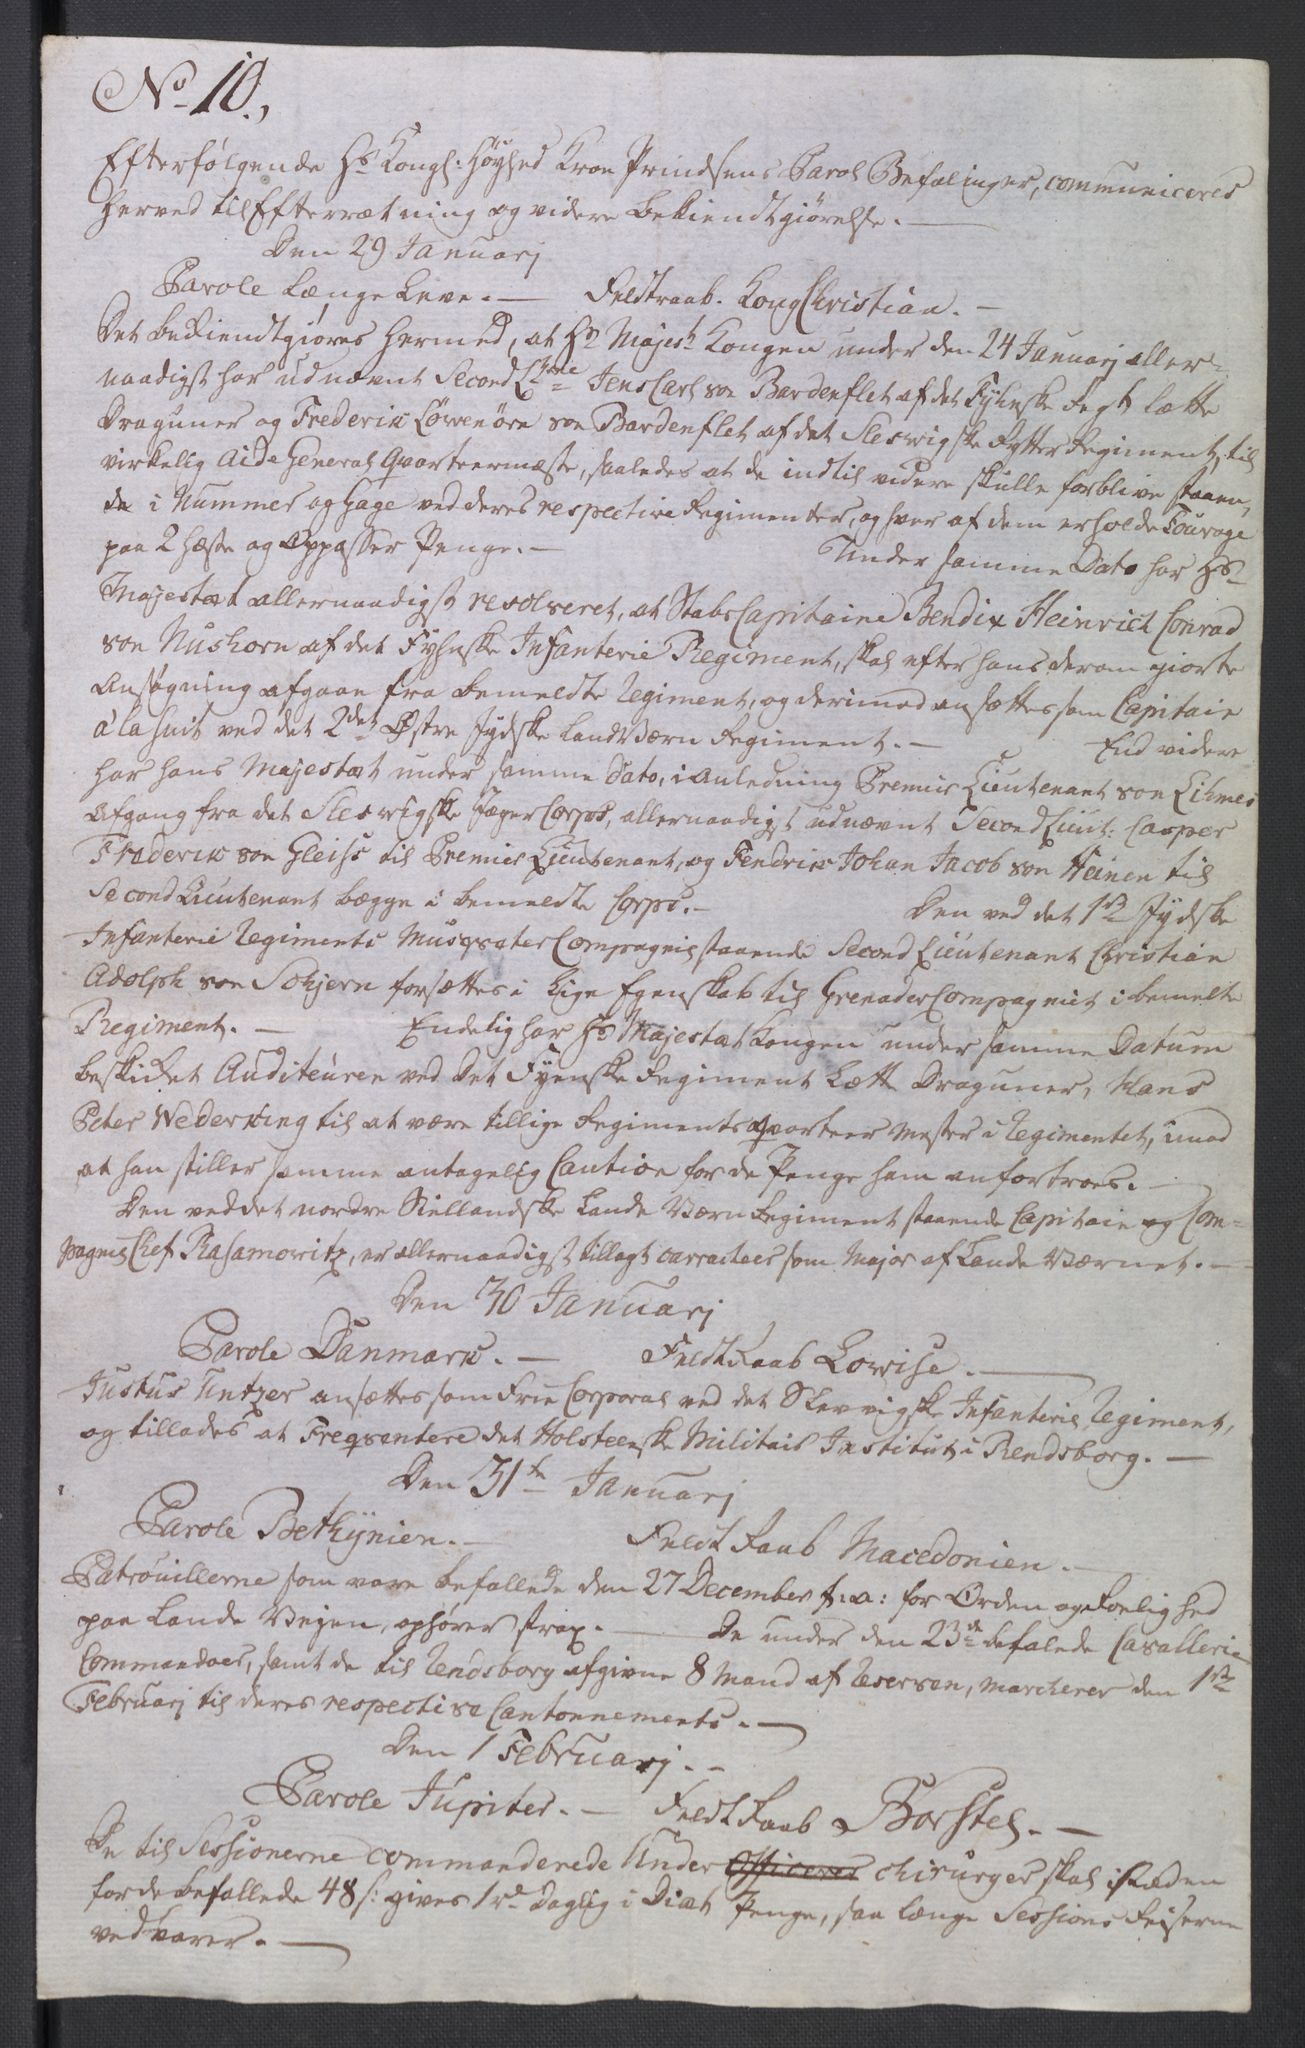 No 10.,
Efterfølgende Hs Kongl: Høyhed Kron Prindsens Parol Befalinger, communiceres
herved til Efterrætning og videre bekiendtgiørelse. —
Den 29 Januarj
Parole Længe Leve. — Feldtraab. Kong Christian. —
Det bekiendtgiøres hermed, at Hs Majest Kongen under den 24 Januarj aller-
naadigst har udnævnt Second Ltne Jens Carl von Bardenflet af det Fyhnske Regt lætte
Draguner og Frederik Löwenörn von Bardenflet af det Sleswigske Rytter Regiment, til
virkelig Aide General Qvarteermestre, saaledes at de indtil videre skulle forblive staaen,
de i Nummer og Gage ved deres respective Regimenter, og hver af dem erholde Fourage
paa 2 Hæste og Oppasser Penge. — Under samme Dato har Hs
Majestæt allernaadigst resolveret, at Stabs Capitaine Bendix Heinrich Conrad
von Nushorn af det Fyhnske Infanterie Regiment, skal efter hans derom giorte
Ansøgning afgaae fra bemeldte Regiment, og derimod ansættes som Capitain
a la suit ved det 2det Østre Jydske LandVærn Regiment. — End videre
har hans Majestæt under samme Dato, i Anledning Premier Lieutenant von Lihmes
Afgang fra det Sleswigske Jæger Corps, allernaadigst udnævnt Second Lieut: Casper
Frederik von Gleiss til Premier Lieutenant, og Fendrik Johan Jacob von Heinen til
Second Lieutenant begge i bemeldte Corps. — Den ved det 1ste Jydske
Infanterie Regiments Musqveteer Compagnie staaende Second Lieutenant Christian
Adolph von Schjern forsættes i Lige Egenskab til Grenadeer Compagniet i bemelte
Regiment. — Endelig har Hs Majestæt Kongen under samme Datum
beskikket Auditeuren ved det Fyenske Regiment Lætte Draguner, Hans
Peter Wederking til at være tillige Regiments Qvarteer Mester i Regimentet, imod
at han stiller samme antagelig Caution for de Penge ham anfortroes. —
Den ved det nordre Siellandske Lande Værn Regiment staaende Capitain og Com-
pagnie Chef Rasamowitz, er allernaadigst tillagt carracteer som Major af Lande Værnet. —
Den 30 Januarj
Parole Danmark. — Feldt Raab Lowise. —
Justus Untzer ansættes som Frie Corporal ved det Slesvigske Infanterie Regiment,
og tillades at Freqventere det Holsteenske Militair Institut i Rendsborg. —
Den 31te Januarj
Parole Bethynien. — Feldt Raab Macedonien. —
Patrouillerne som vare befallede den 27 December f: a: for Orden og Roelighed
paa Lande Vejen, ophører strax. — De under den 23de befalede Cavallerie
Commandoer, samt de til Rendsborg afgivne 8 Mand af Reserven, marcherer den 1ste
Februarj til deres respective Cantonnements. —
Den 1 Februarj. —
Parole Jupiter. — Feldt Raab Borstel. —
De til Sessionerne commanderede Under Officerer chirurger skal i steden
for de befallede 48 s: gives 1 rd daglig i Diæt Penge, saa længe Sessions Reiserne
vedvarer. —